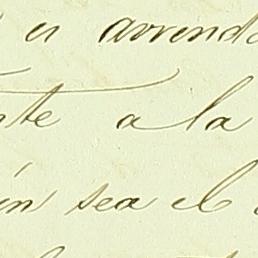 arrend
nte a la
ún sea el